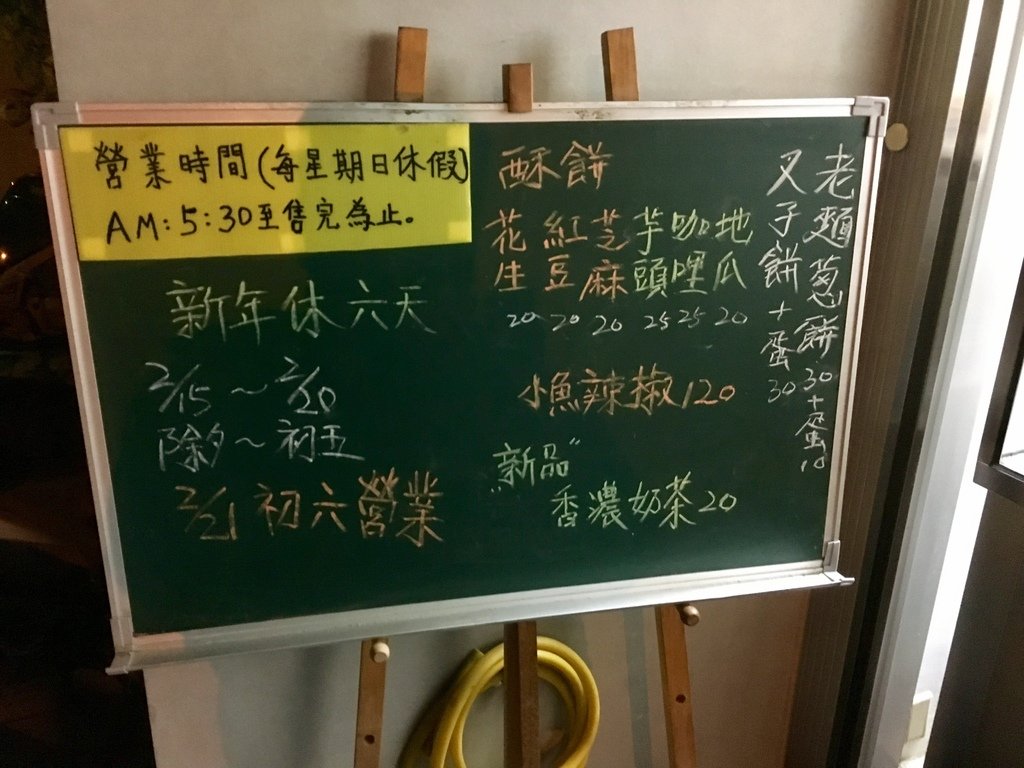 營業時間(每星期日休假)
AM:5:30至售完為止。
新年休六天
2/15～2/20
除夕～初五
2/21初六營業
酥餅
花生 紅豆 芝麻 芋頭 咖哩 地瓜
20 20 20 25 25 20
小魚辣椒120
"新品"
香濃奶茶20
老麵蔥餅30+蛋10
叉子餅+蛋30